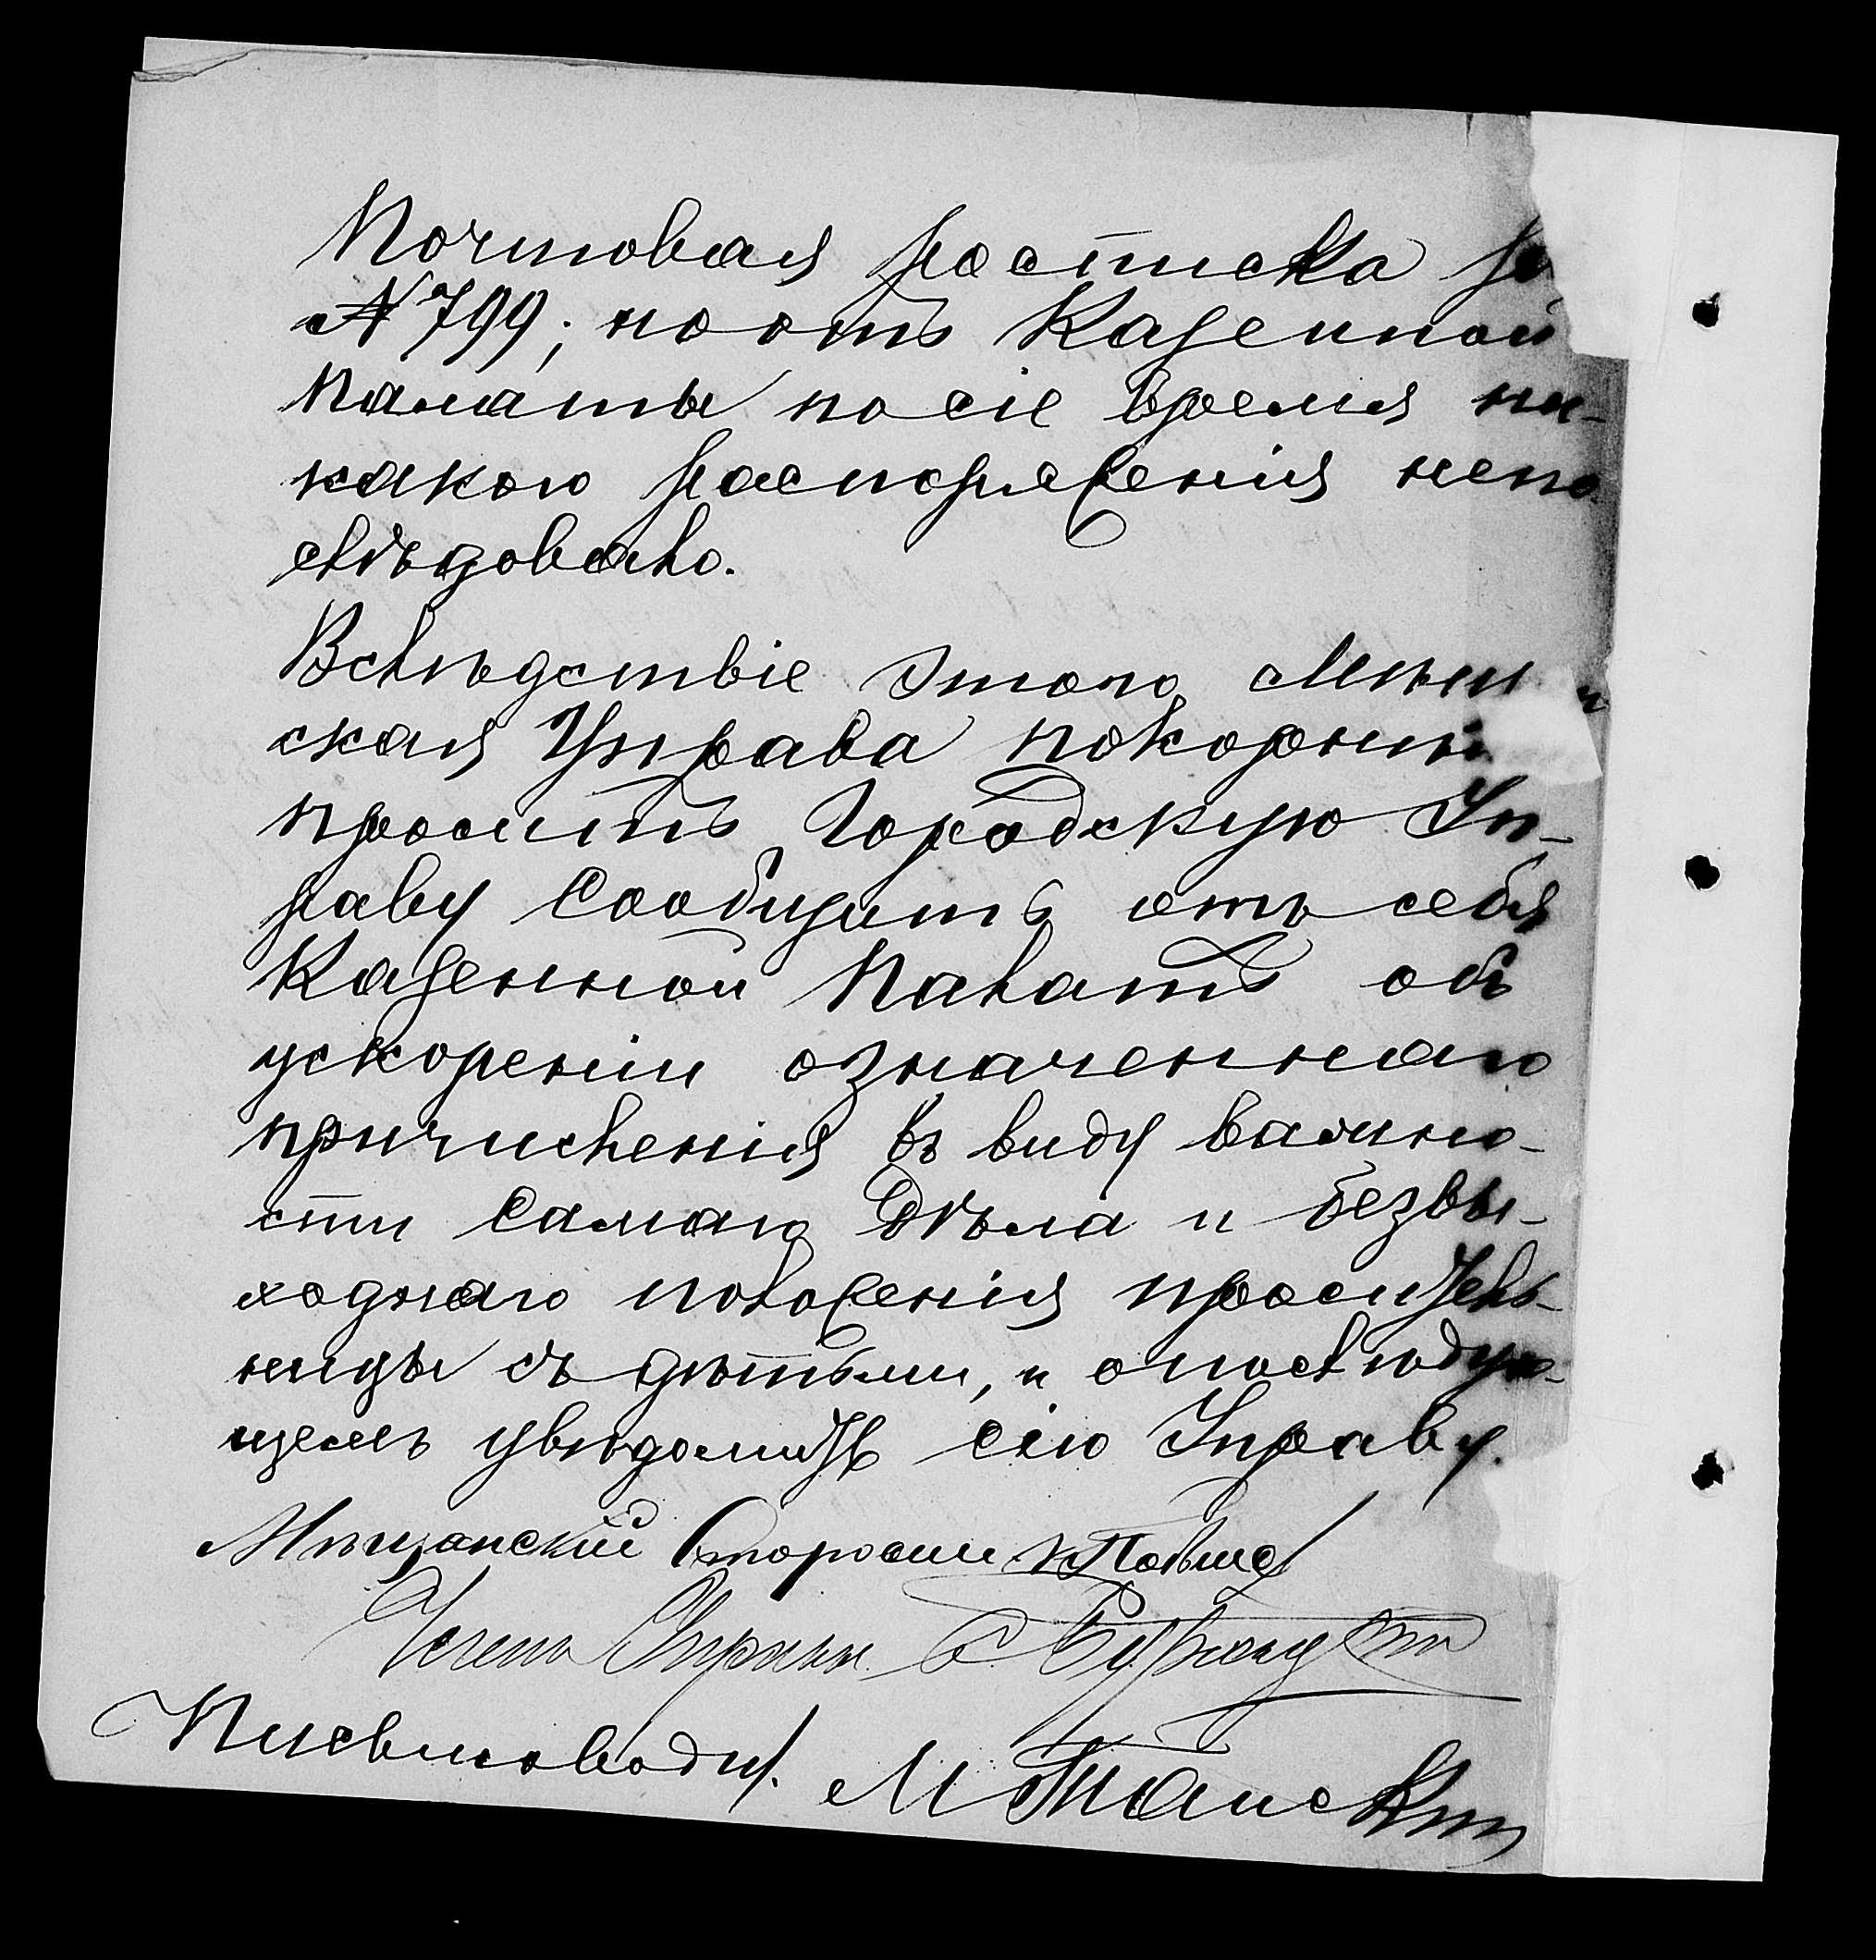 Почтовая росписка за
№ 799; но отъ Казенной
Палаты по сіе время ни-
какого распоряженія непо
слѣдовало.
Вслѣдствіе этого Мѣщан
ская Управа покорнѣй
проситъ Городскую Уп-
раву Сообщить отъ себя
Казенной Палатѣ объ
ускореніи означеннаго
причисленія въ виду важно-
сти Самаго Дѣла и безвы-
ходнаго положенія проситель-
ницы съ дѣтьми, и опослѣдую-
щемъ увѣдомить сію Управу.
Мѣщанскій Староста
Членъ Управы
Письмоводит.